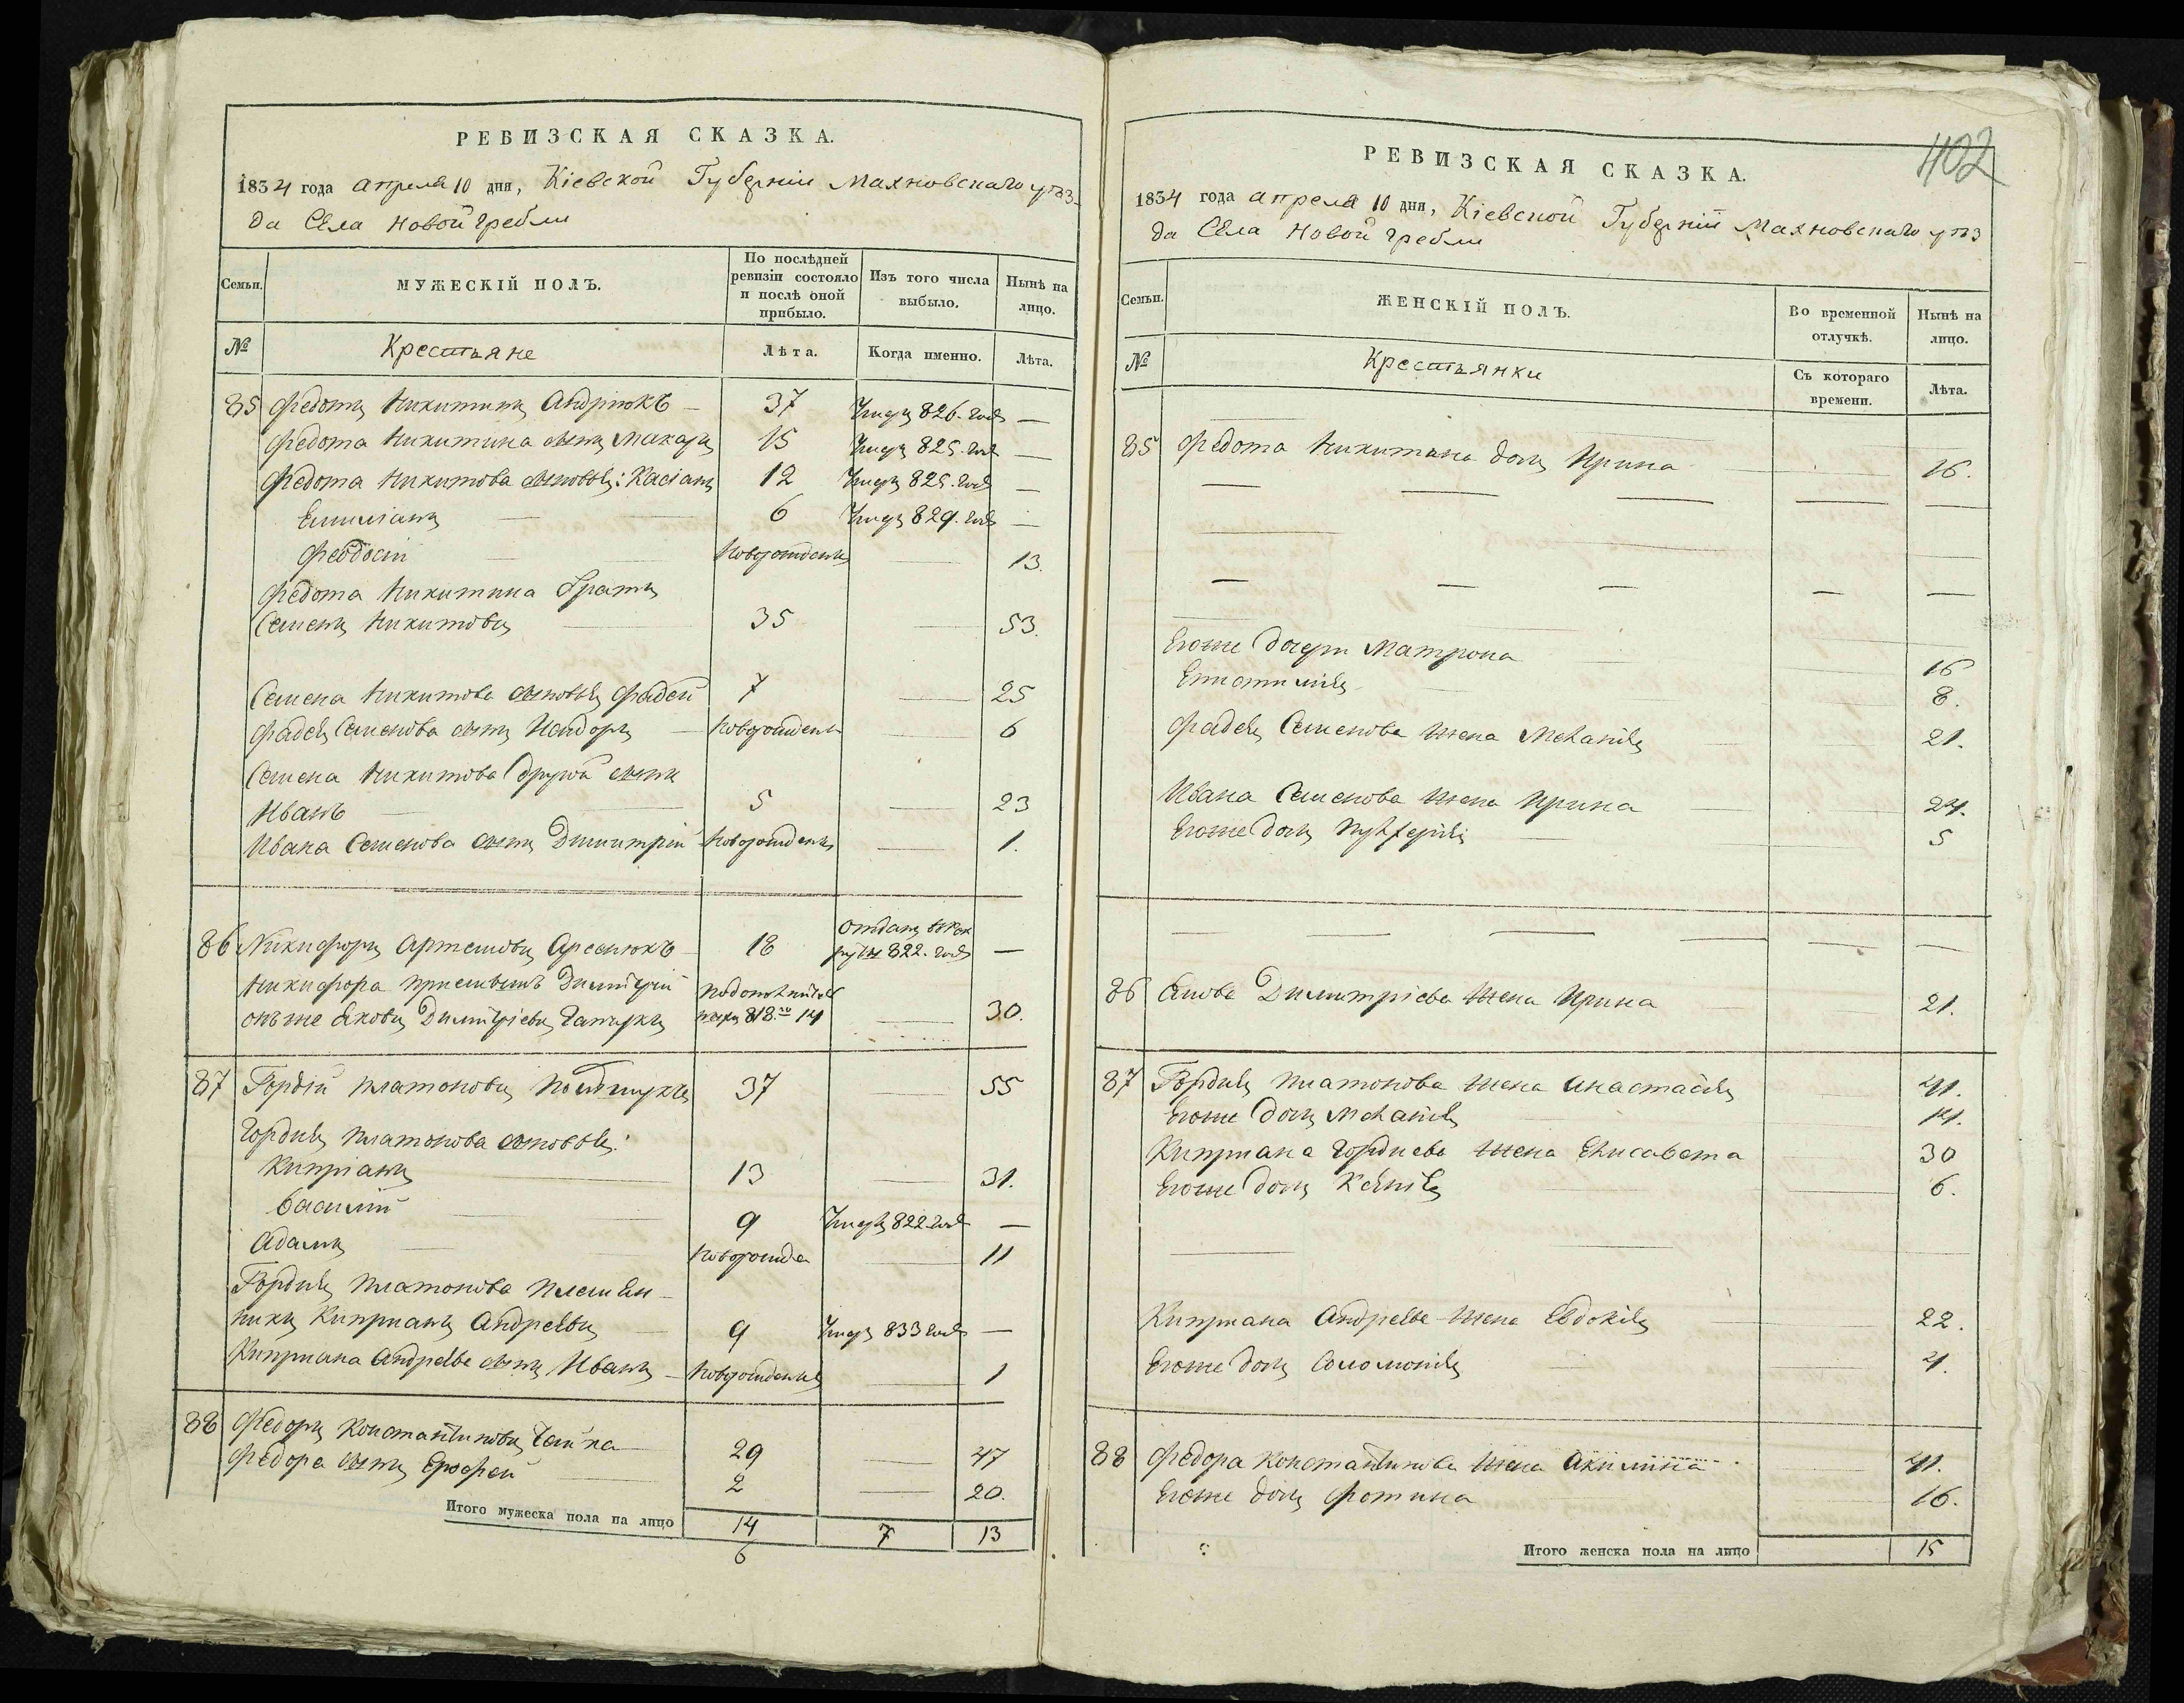 РЕВИЗСКАЯ СКАЗКА.
1834 года апреля 10 дня, Кіевской Губерніи Махновскаго уѣз-
да Села Новой Гребли
Семьи.
МУЖЕСКІЙ ПОЛЪ.
По послѣдней ревизіи состояло и послѣ оной прибыло.
Изъ того числа выбыло.
Нынѣ на лицо.
№
Крестьяне
Лѣта.
Когда именно.
Лѣта.
85 Федотъ Никитинъ Андріюкъ — 37 Умеръ 826. года —
Федота Никитина сынъ Макаръ 15 Умеръ 825. года —
Федота Никитова сыновья: Касіанъ 12 Умеръ 825. года —
Емиліанъ — 6 Умеръ 829. года —
Феодосій Новорожденъ — 13.
Федота Никитина братъ
Семенъ Никитовъ 35 — 53.
Семена Никитова сыновья Фадей 7 — 25
Фадея Семенова сынъ — Новорожденъ — 6
Семена Никитова другой сынъ
Иванъ — 5 — 23
Ивана Семенова сынъ Димитрій Новорожденъ — 1.
86 Никифоръ Артемовъ — 18 Отданъ в рек
руты 822. года —
Никифора пріемышъ Димитрій
онъ же Яковъ Димитріевъ 818.го 14 — 30.
87 Гордій Платоновъ 37 — 55
Гордия Платонова сыновья:
Кипріанъ — 13 — 31.
Василий — 9 Умеръ 822 года —
Адамъ — Новорожде — 11
Гордия Платонова племян-
никъ Киприанъ Андреевъ — 9 Умеръ 833 года —
Киприана Андреева сынъ Иванъ — Новорожденъ — 1
88 Федоръ Константиновъ Чайка 29 — 47
Федора сынъ Ерофей — 2 — 20.
Итого мужеска пола на лицо 14 7 13
6
402
РЕВИЗСКАЯ СКАЗКА.
1834 года апреля 10 дня, Кіевской Губерніи Махновскаго уѣз
да Села Новой Гребли
Семьи.
ЖЕНСКІЙ ПОЛЪ.
Во временной отлучкѣ.
Нынѣ на лицо.
№
Крестьянки
Съ котораго времени.
Лѣта.
85 Федота Никитина дочь Ирина — 16.
Егоже дочери Матрона 16
8.
Фадея Семенова жена Меланія 21.
Ивана Семенова жена Ирина 24.
Егоже дочь 5
86 Якова Димитріева жена Ирина — 21.
87 Гордия Платонова жена Анастасія — 41.
Егоже дочь Меланія 14.
Киприана Гордиева жена Елисавета 30
Егоже дочь Ксенія 6.
Киприана Андреева жена Евдокія 22.
Егоже дочь Соломонія 4.
88 Федора Константинова жена Акилина 41.
Егоже дочь Фотина 16.
Итого женска пола на лицо 15